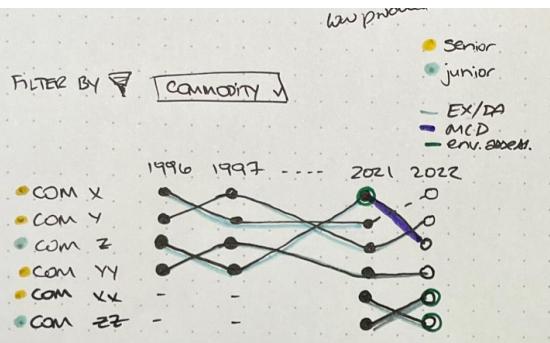 Senior
junior
FILTER BY COMMODITY
EX/DA
MCD
env. assess.
1996 1997 .... 2021 2022
COM X
COM Y
COM Z
COM YY
COM XX - -
COM ZZ - -